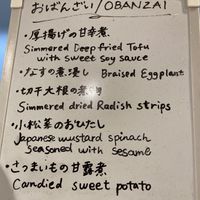 おばんざい/OBANZAI
・厚揚げの甘辛煮
Simmered Deep fried Tofu
with sweet Soy sauce
・なすの煮浸し Braised Eggplant
・切干大根の煮物
Simmered dried Radish strips
・小松菜のおひたし
Japanese mustard spinach
seasoned with sesame
・さつまいもの甘露煮
Candied sweet potato